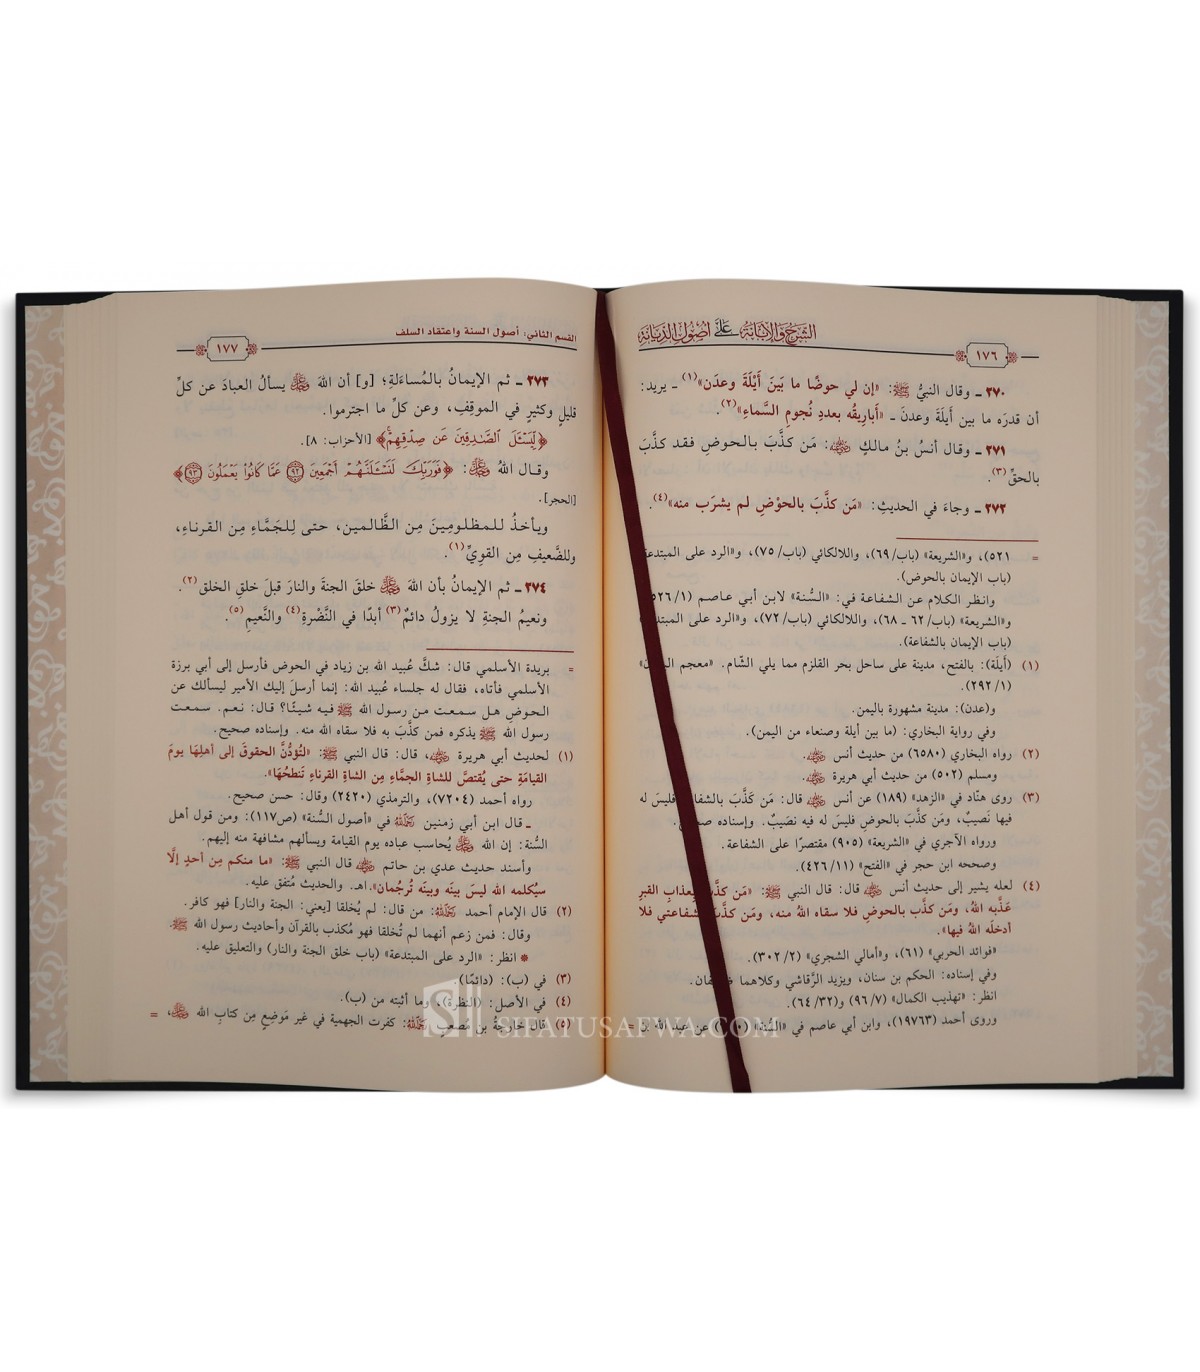 الشرح والإبانة على أصول الديانة
١٧٦
٢٧٠ ـ وقال النبيُّ ﷺ: «إن لي حوضًا ما بَينَ أَيْلَةَ وعدَن»(١) ـ يريد:
أن قدرَه ما بين أَيلَةَ وعدنَ ـ «أباريقُه بعددِ نُجومِ السَّماءِ»(٢).
٢٧١ ـ وقال أنسُ بنُ مالكٍ ﵁: مَن كذَّبَ بالحوضِ فقد كذَّبَ
بالحقِّ(٣).
٢٧٢ ـ وجاءَ في الحديثِ: «مَن كذَّبَ بالحوْضِ لم يشرَب منه»(٤).
= ٥٢١)، و«الشريعة» (باب/٦٩)، واللالكائي (باب/٧٥)، و«الرد على المبتدعة»
(باب الإيمان بالحوض).
وانظر الكلام عن الشفاعة في: «السُّنة» لابن أبي عاصم (٥٢٦/١)
و«الشريعة» (باب/٦٢ ـ ٦٨)، واللالكائي (باب/٧٢)، و«الرد على المبتدعة»
(باب الإيمان بالشفاعة).
(١) (أيلَة): بالفتح، مدينة على ساحل بحر القلزم مما يلي الشَّام. «معجم
(٢٩٢/١).
و(عدن): مدينة مشهورة باليمن.
وفي رواية البخاري: (ما بين أيلة وصنعاء من اليمن).
(٢) رواه البخاري (٦٥٨٠) من حديث أنس ﵁.
ومسلم (٥٠٢) من حديث أبي هريرة ﵁.
(٣) روى هنّاد في «الزهد» (١٨٩) عن أنس ﵁ قال: مَن كذَّبَ بالشفاعة فليسَ له
فيها نَصيبٌ، ومَن كذَّب بالحوضِ فليسَ له فيه نصَيبٌ. وإسناده صحيح.
ورواه الآجري في «الشريعة» (٩٠٥) مقتصرًا على الشفاعة.
وصححه ابن حجر في «الفتح» (٤٢٦/١١).
(٤) لعله يشير إلى حديث أنس ﵁ قال: قال النبي ﷺ: «مَن كذَّبَ بعذابِ القبرِ
عَذَّبه اللهُ، ومَن كذَّب بالحوضِ فلا سقاه اللهُ منه، ومَن كذَّبَ بشفاعتي فلا
أدخلَه اللهُ فيها».
«فوائد الحربي» (٦١)، و«أمالي الشجري» (٣٠٢/٢).
وفي إسناده: الحكم بن سنان، ويزيد الرَّقاشي وكلاهما ضعيفان.
انظر: «تهذيب الكمال» (٩٦/٧) و(٦٤/٣٢).
وروى أحمد (١٩٧٦٣)، وابن أبي عاصم في «السُّنة» عن عبد الله بن =
القسم الثاني: أصول السنة واعتقاد السلف
١٧٧
٢٧٣ ـ ثم الإيمانُ بالمُساءَلةِ؛ [و] أن اللهَ ﷿ يسألُ العبادَ عن كلِّ
قليلٍ وكثيرٍ في الموقِفِ، وعن كلِّ ما اجترموا.
﴿لِّيَسْـَٔلَ ٱلصَّـٰدِقِينَ عَن صِدْقِهِمْ﴾ [الأحزاب: ٨].
وقال اللهُ ﷿: ﴿فَوَرَبِّكَ لَنَسْـَٔلَنَّهُمْ أَجْمَعِينَ ٩٢ عَمَّا كَانُوا۟ يَعْمَلُونَ ٩٣﴾
[الحجر].
ويأخذُ للمظلومِينَ مِن الظَّالمين، حتى لِلجَمَّاءِ مِن القرناءِ،
وللضَّعيفِ مِن القويِّ(١).
٢٧٤ ـ ثم الإيمانُ بأن اللهَ ﷿ خلقَ الجنةَ والنارَ قبلَ خلقِ الخلق(٢).
ونعيمُ الجنةِ لا يزولُ دائمٌ(٣) أبدًا في النَّضْرةِ(٤) والنَّعيمِ(٥).
= بريدة الأسلمي قال: شكَّ عُبيد الله بن زياد في الحوض فأرسل إلى أبي برزة
الأسلمي فأتاه، فقال له جلساء عُبيد الله: إنما أرسلَ إليك الأمير ليسألك عن
الحوضِ هل سمعت من رسول الله ﷺ فيه شيئًا؟ قال: نعم. سمعت
رسول الله ﷺ يذكره فمن كذَّبَ به فلا سقاه الله منه. وإسناده صحيح.
(١) لحديث أبي هريرة ﵁، قال: قال النبي ﷺ: «لتُؤدَّنَّ الحقوقَ إلى أهلِهَا يومَ
القيامَةِ حتى يُقتصَّ للشاةِ الجمَّاءِ مِن الشاةِ القرناءِ تَنطحُهَا».
رواه أحمد (٧٢٠٤)، والترمذي (٢٤٢٠) وقال: حسن صحيح.
ـ قال ابن أبي زمنين ﵀ في «أصول السُّنة» (ص١١٧): ومن قول أهل
السُّنة: إن اللهَ ﷿ يُحاسب عباده يوم القيامة ويسألهم مشافهة منه إليهم.
وأسند حديث عدي بن حاتم ﵁ قال النبي ﷺ: «ما منكم مِن أحدٍ إلَّا
سيُكلمه الله ليسَ بينَه وبينَه تُرجُمان». اهـ. والحديث مُتفق عليه.
(٢) قال الإمام أحمد ﵀: من قال: لم يُخلقا [يعني: الجنة والنار] فهو كافر.
وقال: فمن زعم أنهما لم تُخلقا فهو مُكذب بالقرآن وأحاديث رسول الله ﷺ.
* انظر: «الرد على المبتدعة» (باب خلق الجنة والنار) والتعليق عليه.
(٣) في (ب): (دائمًا).
(٤) في الأصل: (النظرة)، وما أثبته من (ب).
(٥) قال خارجةُ بن مُصعب ﵀: كفرت الجهمية في غير مَوضِع مِن كتابِ الله ﷿، =
SIFATUSAFWA.COM